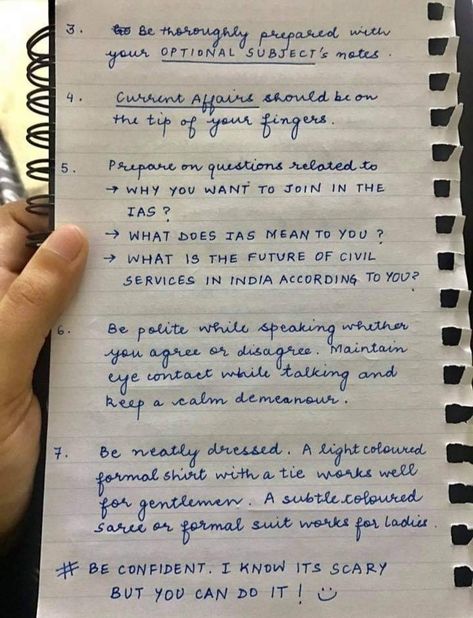 3. Be thoroughly prepared with
your OPTIONAL SUBJECT's notes.
4. Current Affairs should be on
the tip of your fingers.
5. Prepare on questions related to
→ WHY YOU WANT TO JOIN IN THE
IAS?
→ WHAT DOES IAS MEAN TO YOU?
→ WHAT IS THE FUTURE OF CIVIL
SERVICES IN INDIA ACCORDING TO YOU?
6. Be polite while speaking whether
you agree or disagree. Maintain
eye contact while talking and
keep a calm demeanour.
7. Be neatly dressed. A light coloured
formal shirt with a tie works well
for gentlemen. A subtle coloured
saree or formal suit works for ladies.
# BE CONFIDENT. I KNOW ITS SCARY
BUT YOU CAN DO IT! :)